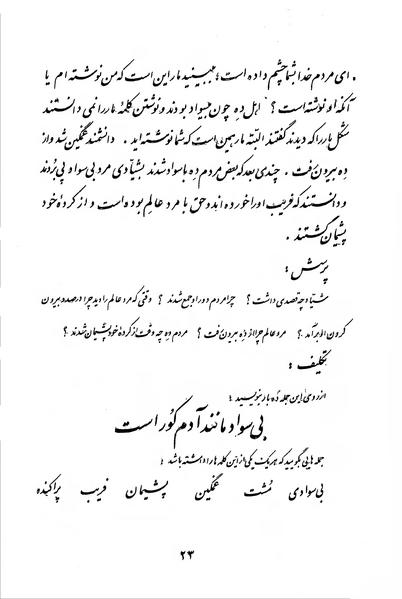 . ای مردم خدا بشما چشم داده است؛ ببینید مار این است که من نوشته ام یا
آنکه او نوشته است؟ اهل ده چون بیسواد بودند و نوشتن کلمهٔ مار را نمی دانستند
شکل مار را که دیدند گفتند البته مار همین است که شما نوشته اید . دانشمند غمگین شد و از
ده بیرون رفت . چندی بعد که بعض مردم ده با سواد شدند بشیادی مرد بی سواد پی بردند
و دانستند که فریب او را خورده اند و حق با مرد عالم بوده است و از کردهٔ خود
پشیمان گشتند .
پرسش :
شیاد چه قصدی داشت ؟ چرا مردم دور او جمع شدند ؟ وقتی که مرد عالم را دید چرا درصدد بیرون
کردن او برآمد ؟ مرد عالم چرا از ده بیرون رفت ؟ مردم ده چه وقت از کردهٔ خود پشیمان شدند ؟
تکلیف :
از روی این جمله ده بار بنویسید :
بی سواد مانند آدم کور است
جمله هایی بگویید که هر یک یکی از این کلمه ها را داشته باشد :
بی سوادی زشت غمگین پشیمان فریب پراکنده
۲۳